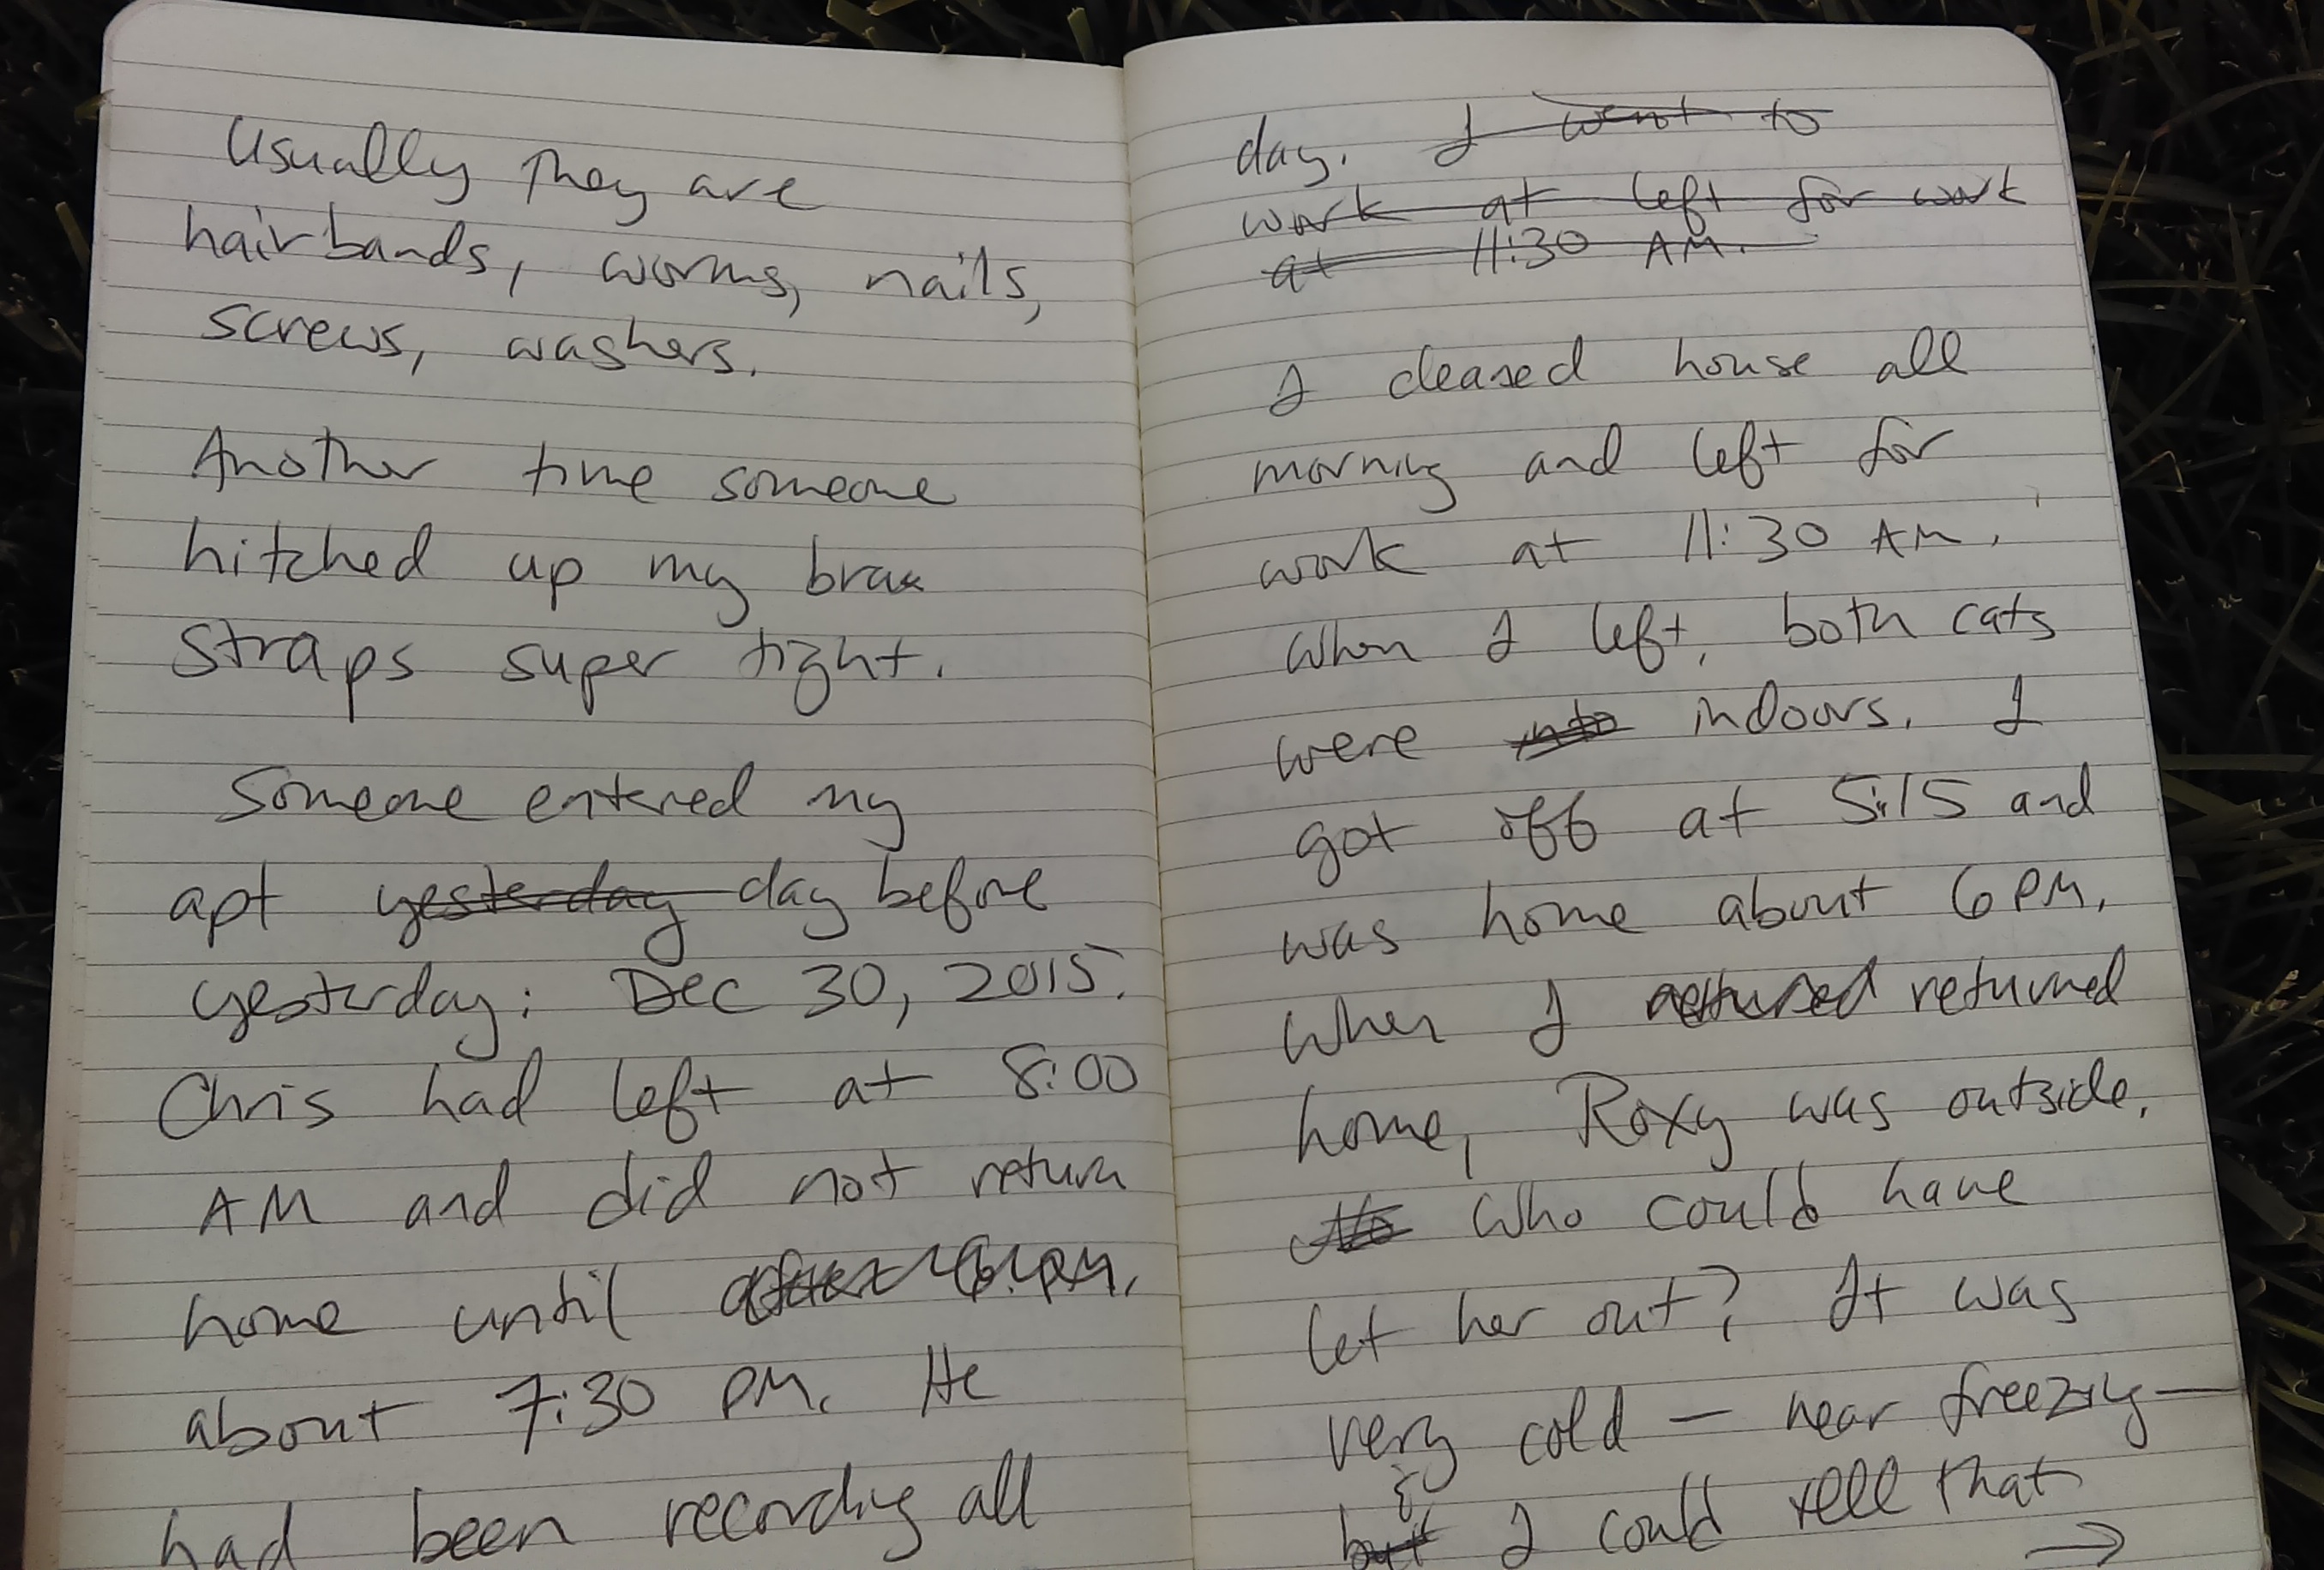 Usually they are
hairbands, worms, nails,
screws, washers.
Another time someone
hitched up my bra
straps super tight.
Someone entered my
apt yesterday day before
yesterday: Dec 30, 2015.
Chris had left at 8:00
AM and did not return
home until after 6 PM,
about 7:30 PM. He
had been recording all
day. I went to
work at left for work
at 11:30 AM.
I cleaned house all
morning and left for
work at 11:30 AM.
When I left, both cats
were into indoors. I
got off at 5:15 and
was home about 6 PM.
When I returned
home, Roxy was outside.
Who could have
let her out? It was
very cold — near freezing —
&
but I could tell that
→